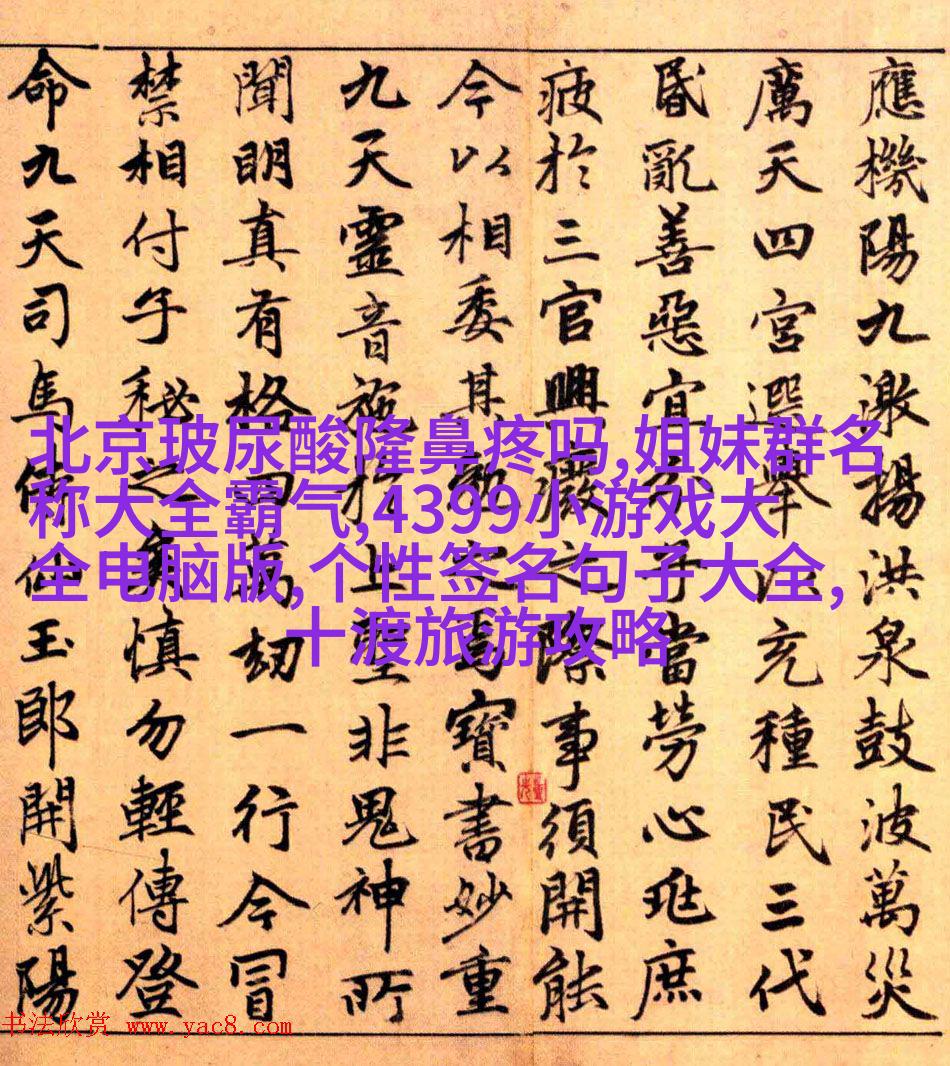 應機陽九激揚洪泉鼓波萬災
厲天四宮選舉充種民三代
昏亂善惡宜分子當勞心兆庶
疲於三官興廢之際事須開能
今以相委其勉之焉寶書妙重
九天靈音施於上聖非鬼神所
聞明真有格四萬劫一行今冒
禁相付子秘之慎勿輕傳登
命九天司馬侍仙玉郎開紫陽
北京玻尿酸隆鼻疼吗,姐妹群名
称大全霸气,4399小游戏大
全电脑版,个性签名句子大全,
十渡旅游攻略
书法欣赏 www.yac8.com